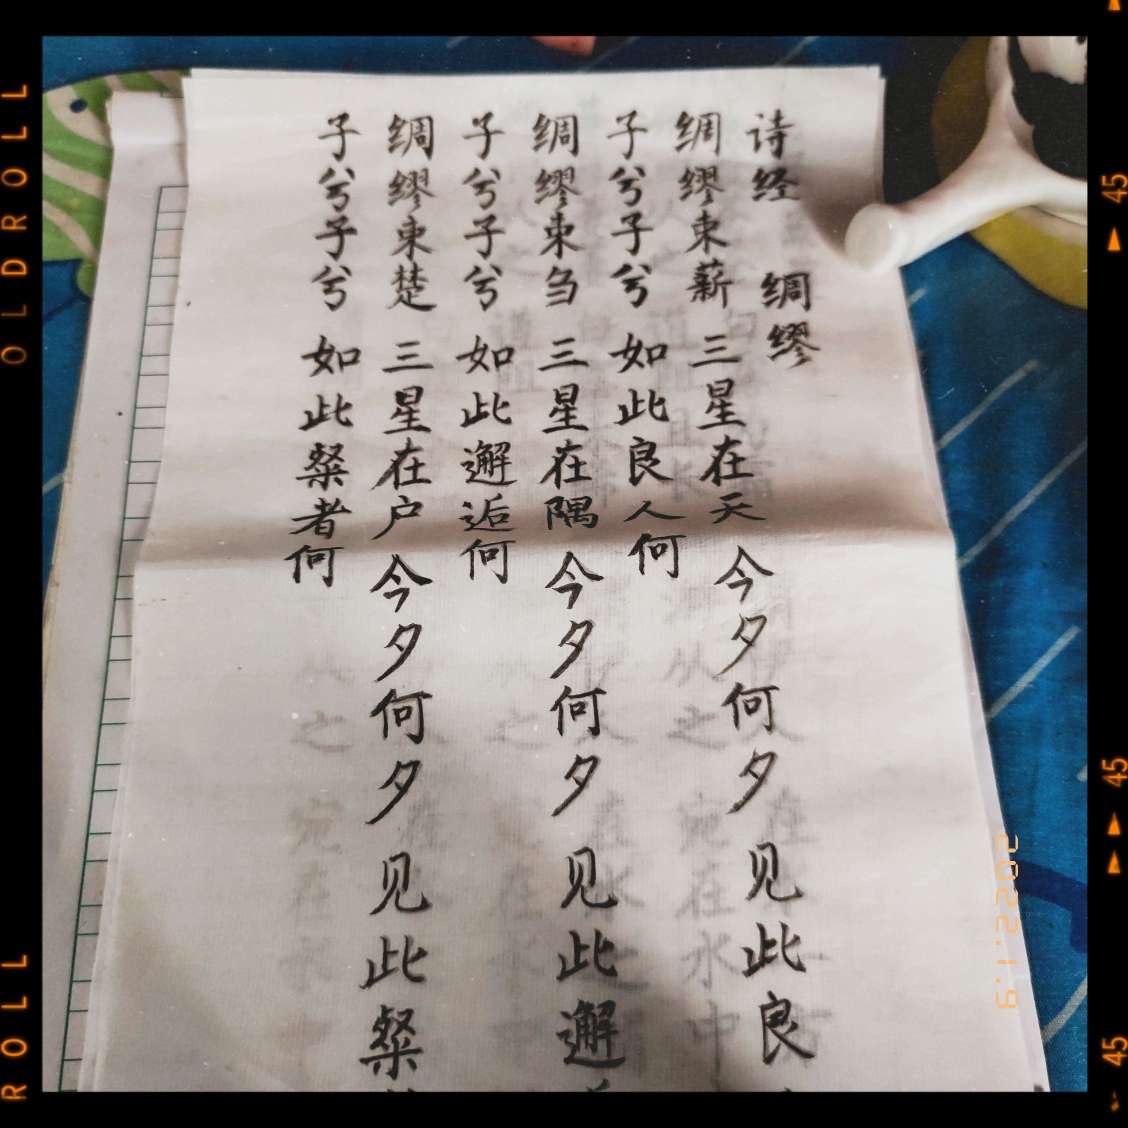 诗经 绸缪
绸缪束薪 三星在天 今夕何夕 见此良
子兮子兮 如此良人何
绸缪束刍 三星在隅 今夕何夕 见此邂
子兮子兮 如此邂逅何
绸缪束楚 三星在户 今夕何夕 见此粲
子兮子兮 如此粲者何
OLDROLL
ROLL
45
45
45
2022.1.9